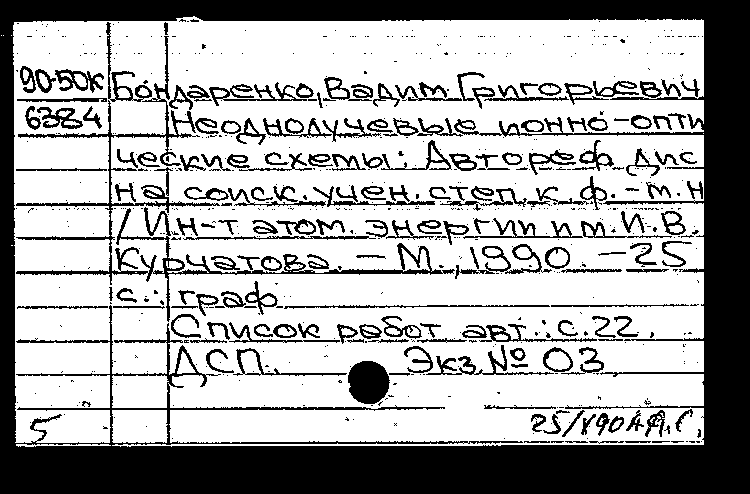 90-50к Бондаренко, Вадим Григорьевич
6384 Неоднолучевые ионно-опти
ческие схемы: Автореф дис
на соиск. учен. степ. к. ф.-м. н
/ Ин-т атом. энергии им. И. В.
Курчатова. - М., 1990. - 25
с.: граф
Список работ авт.: с. 22.
ДСП. Экз № 03
5